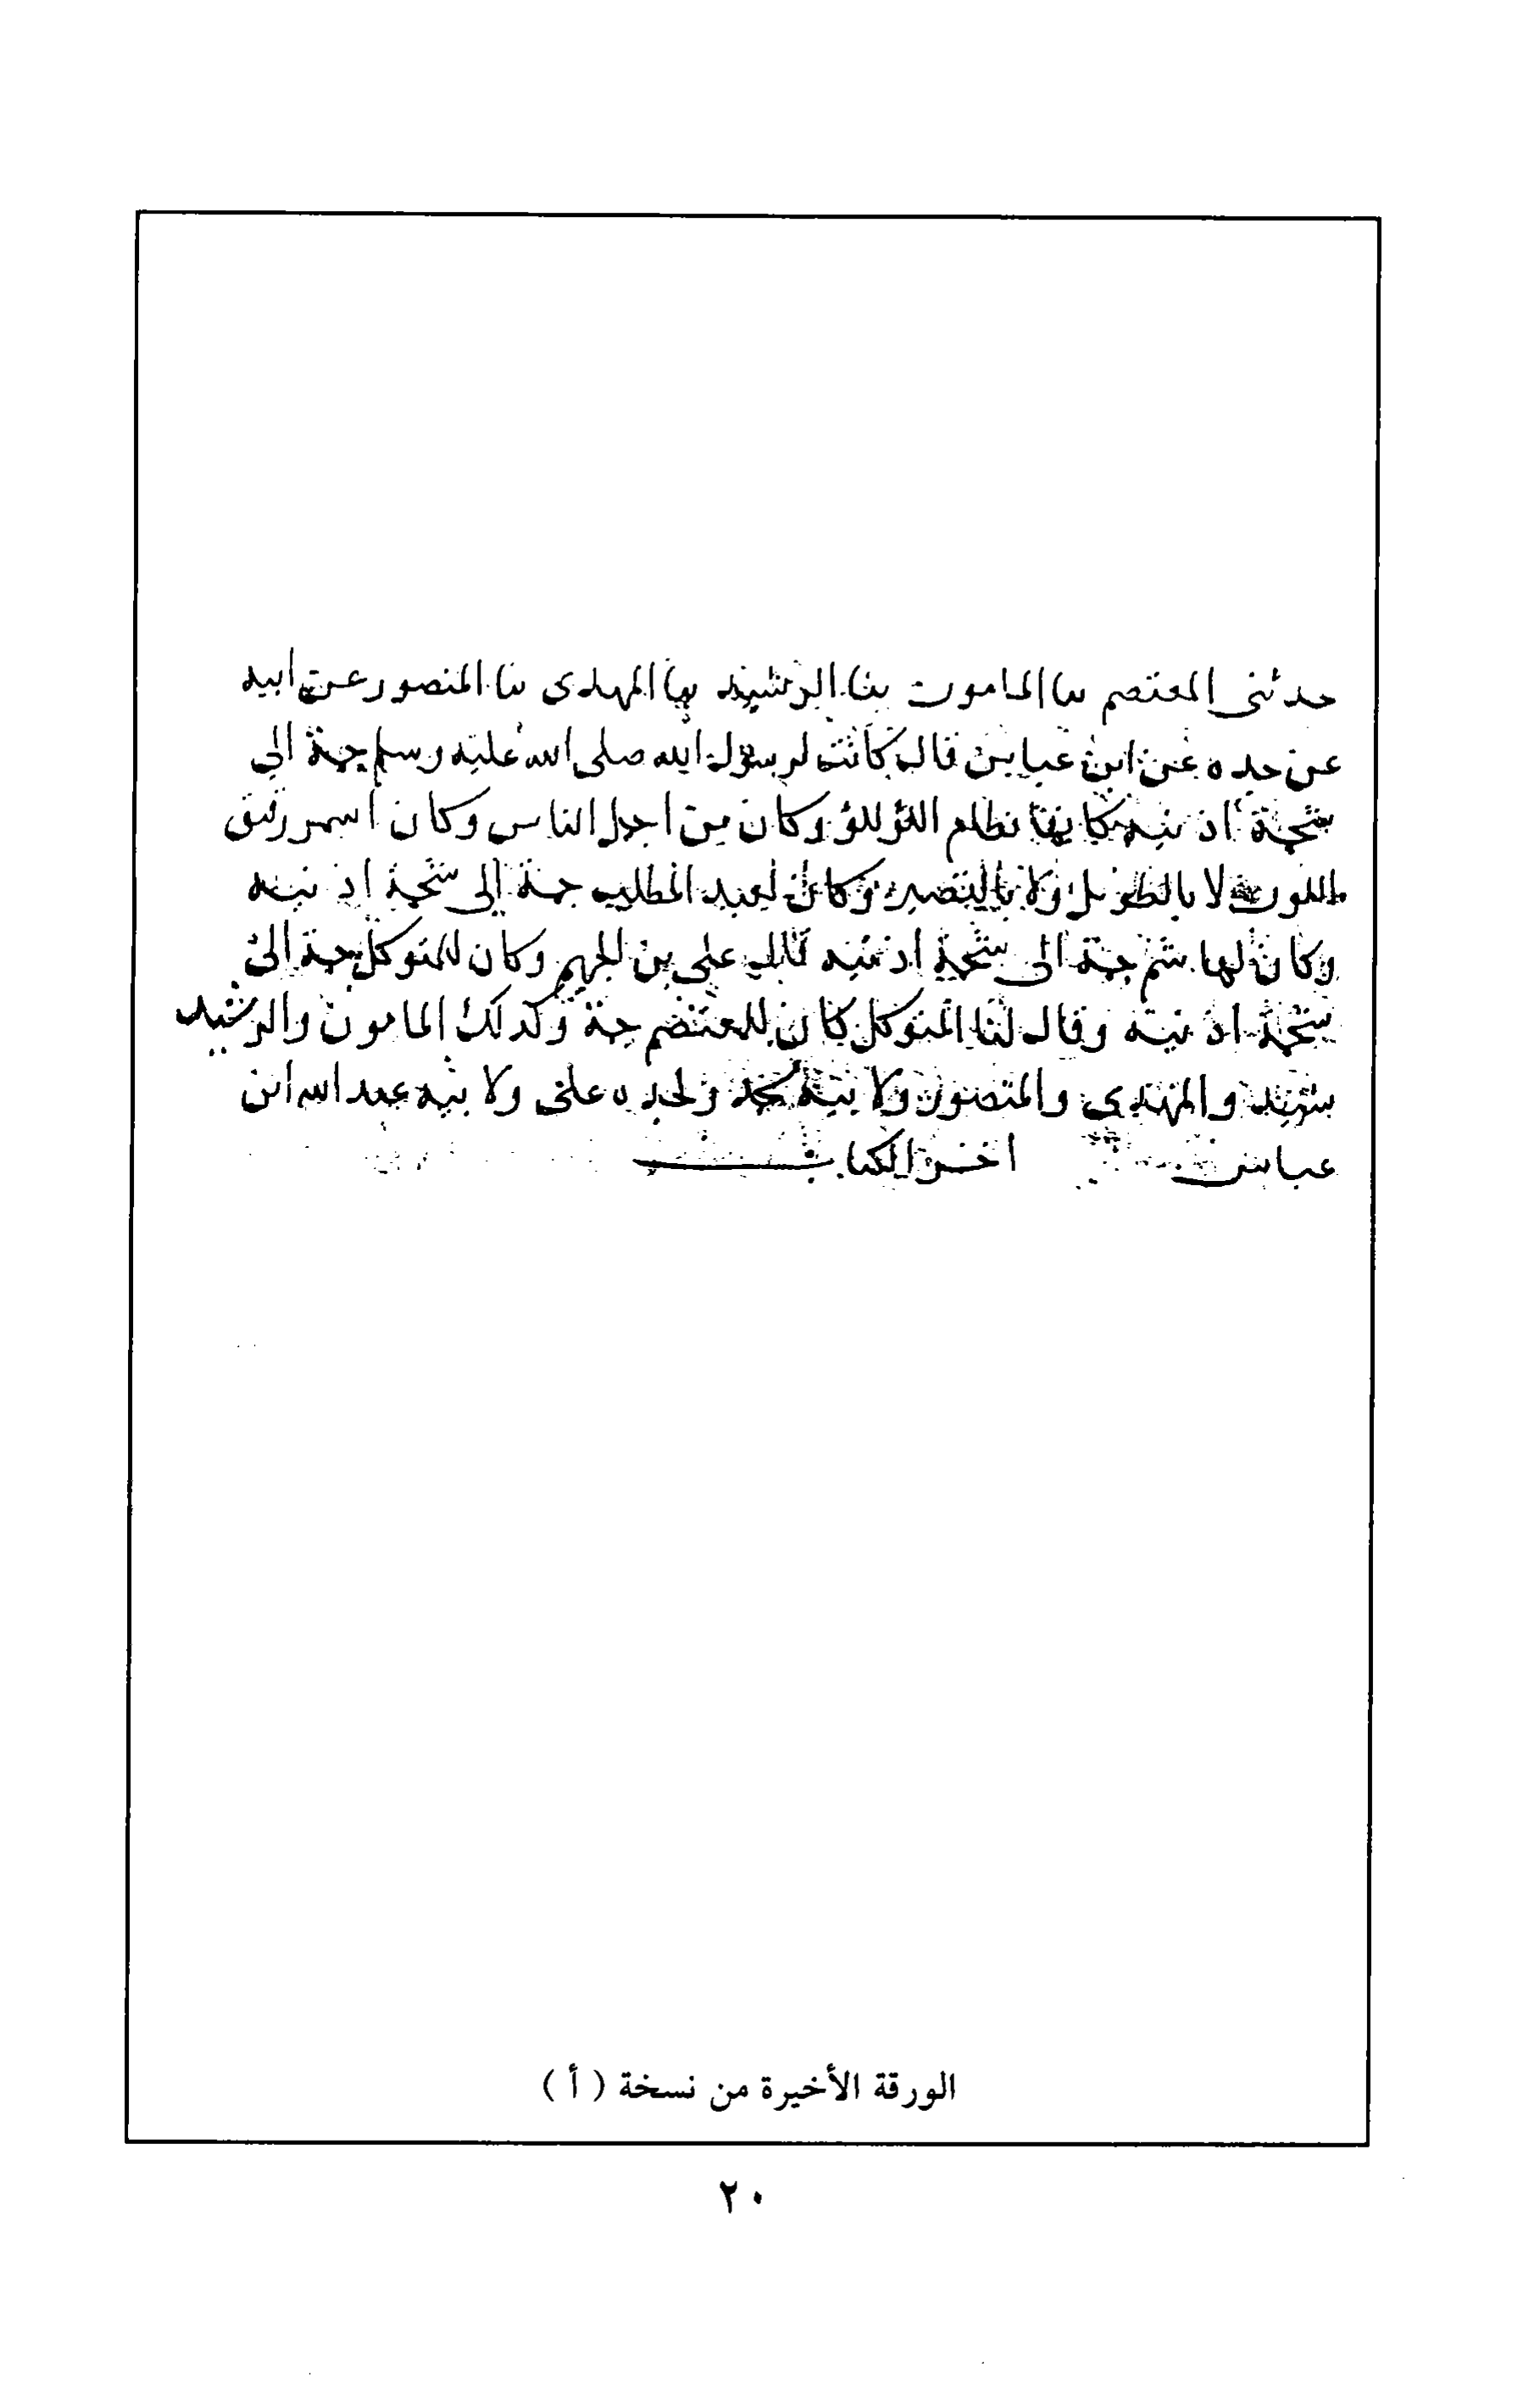 حدثنى المعتصم سا المامون بنا الرشيد بنا المهدى سا المنصور عن ابيه
عن جده عن ابن عباس قال كانت لرسول الله صلى الله عليه وسلم جمة الى
شحمة اذنيه كانها نظام اللؤللؤ وكان من اجمل الناس وكان اسمر رقيق
اللون لا بالطويل ولا بالقصير وكان لعبد المطلب جمة الى شحمة اذنيه
وكان لهاشم جمة الى شحمة اذنيه قال على بن الجهم وكان للمتوكل جمة الى
شحمة اذنيه وقال لنا المتوكل كان للمعتصم جمة وكذلك المامون والرشيد
والمهدى والمنصور ولابيه محمد ولجده على ولابيه عبد الله ابن
عباس اخر الكتاب
الورقة الأخيرة من نسخة ( أ )
٢٠